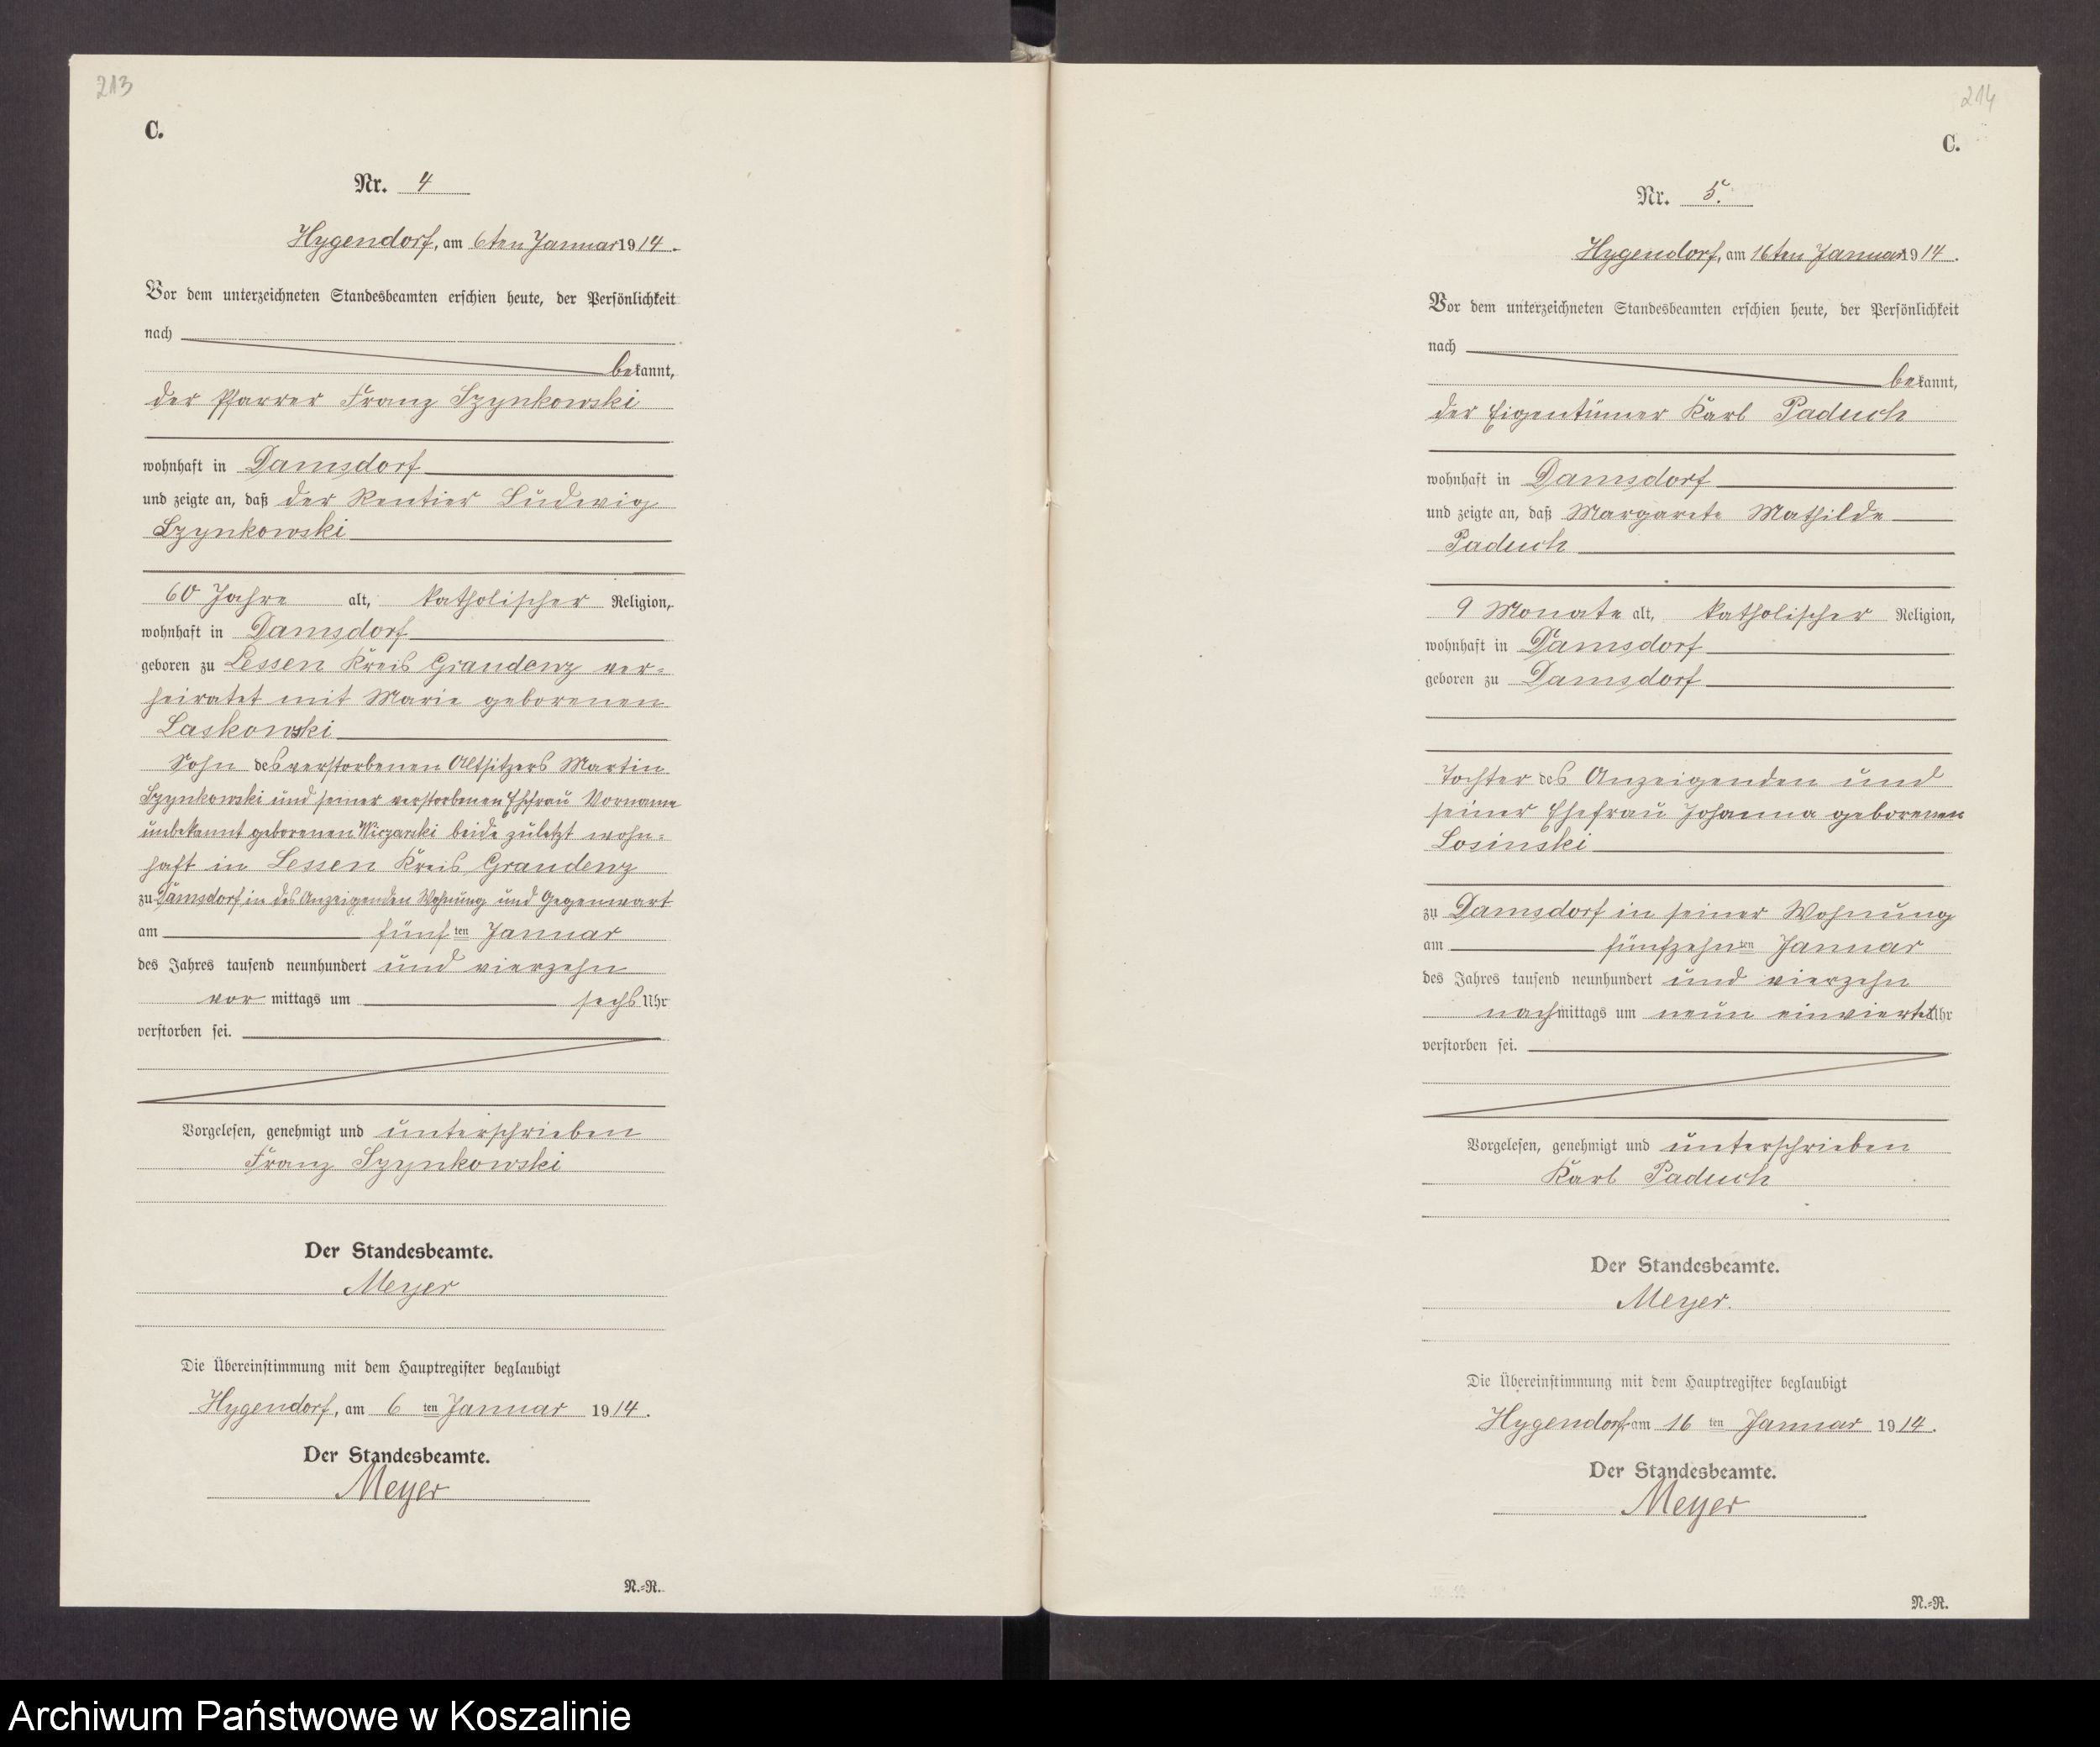 213
C.
Nr. 4
Hygendorf, am 6ten Januar 1914.
Vor dem unterzeichneten Standesbeamten erschien heute, der Persönlichkeit
nach
bekannt,
der Pfarrer Franz Szynkowski
wohnhaft in Damsdorf
und zeigte an, daß der Rentier Ludwig
Szynkowski
60 Jahre alt, katholischer Religion,
wohnhaft in Damsdorf
geboren zu Lessen Kreis Graudenz ver-
heiratet mit Marie geborenen
Laskowski
Sohn des verstorbenen Altsitzers Martin
Szynkowski und seiner verstorbenen Ehefrau Vorname
unbekannt geborenen beide zuletzt wohn-
haft in Lessen Kreis Graudenz
zu Damsdorf in des Anzeigenden Wohnung und Gegenwart
am fünften Januar
des Jahres tausend neunhundert und vierzehn
vor mittags um sechs Uhr
verstorben sei.
Vorgelesen, genehmigt und unterschrieben
Franz Szynkowski
Der Standesbeamte.
Meyer
Die Übereinstimmung mit dem Hauptregister beglaubigt
Hygendorf, am 6 ten Januar 1914.
Der Standesbeamte.
Meyer
N.-R.
214
C.
Nr. 5.
Hygendorf, am 16ten Januar 1914.
Vor dem unterzeichneten Standesbeamten erschien heute, der Persönlichkeit
nach
bekannt,
der Eigentümer Karl Paduch
wohnhaft in Damsdorf
und zeigte an, daß Margarete Mathilde
Paduch
9 Monate alt, katholischer Religion,
wohnhaft in Damsdorf
geboren zu Damsdorf
Tochter des Anzeigenden und
seiner Ehefrau Johanna geborenen
Losinski
zu Damsdorf in seiner Wohnung
am fünfzehnten Januar
des Jahres tausend neunhundert und vierzehn
nachmittags um neun einviertel Uhr
verstorben sei.
Vorgelesen, genehmigt und unterschrieben
Karl Paduch
Der Standesbeamte.
Meyer.
Die Übereinstimmung mit dem Hauptregister beglaubigt
Hygendorf, am 16 ten Januar 1914.
Der Standesbeamte.
Meyer
N.-R.
Archiwum Państwowe w Koszalinie